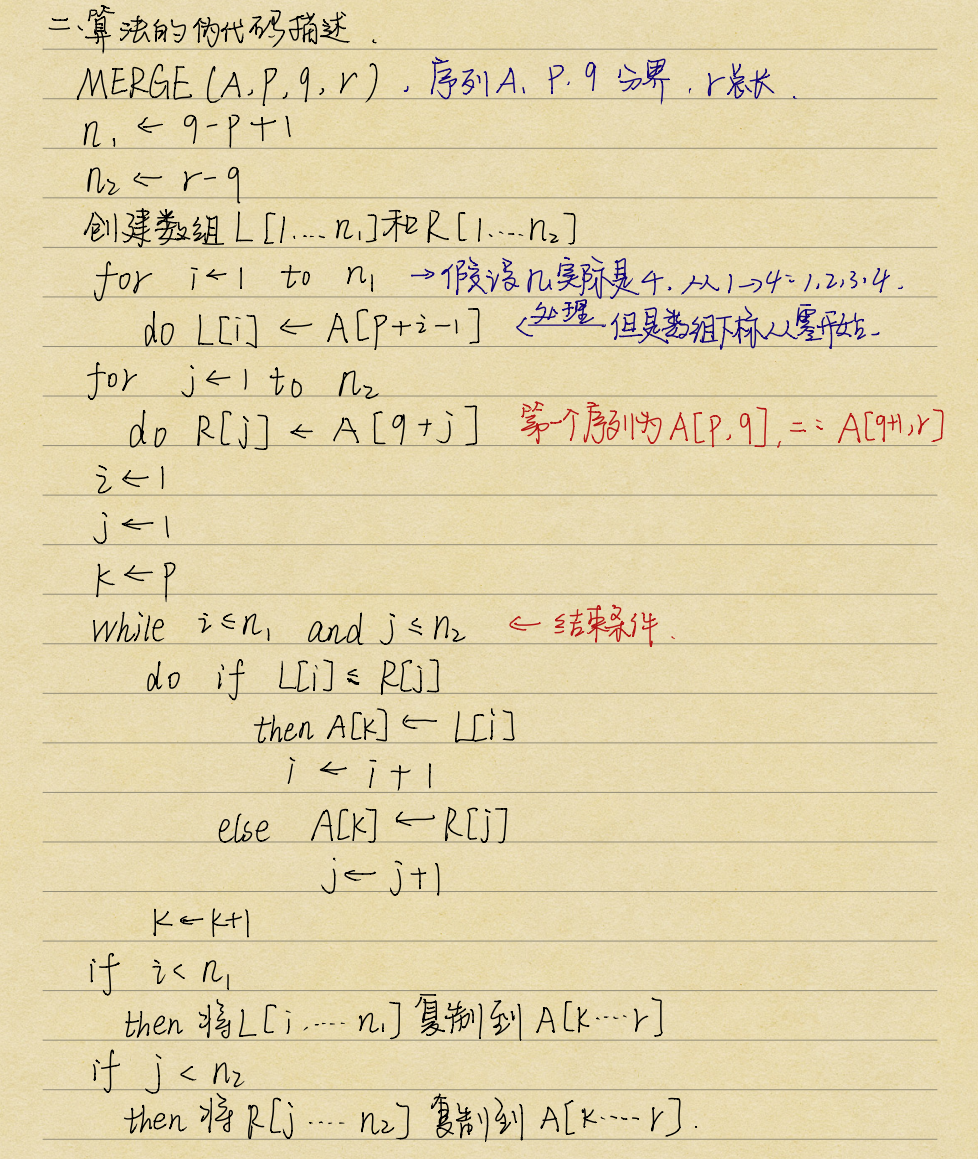 二、算法的伪代码描述.
MERGE(A,p,q,r), 序列A, p.q 分界, r总长.
n₁ ← q-p+1
n₂ ← r-q
创建数组L[1....n₁]和R[1....n₂]
for i←1 to n₁ →假设n₁实际是4, 从1→4: 1,2,3,4.
do L[i] ← A[p+i-1] ←处理 但是数组下标从零开始.
for j←1 to n₂
do R[j] ← A[q+j] 第一个序列为A[p,q], 二: A[q+1,r]
i←1
j←1
k←p
while i≤n₁ and j≤n₂ ← 结束条件.
do if L[i]≤R[j]
then A[k] ← L[i]
i ← i+1
else A[k] ← R[j]
j← j+1
k←k+1
if i< n₁
then 将L[i.....n₁] 复制到 A[k....r]
if j < n₂
then 将R[j....n₂] 复制到 A[k.....r].